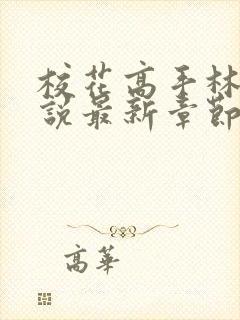 校花高手林
說最新章節
高華